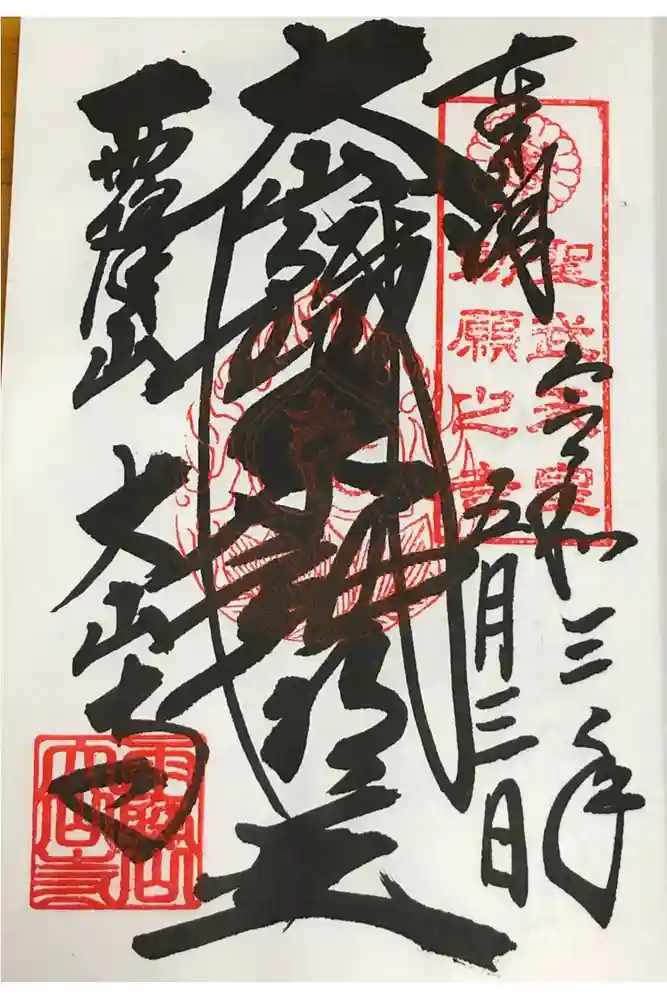 奉拝
聖武天皇
勅願之寺
令和三年
五月三日
大鐵不動明王
雨降山 大山寺
雨降山
大山寺